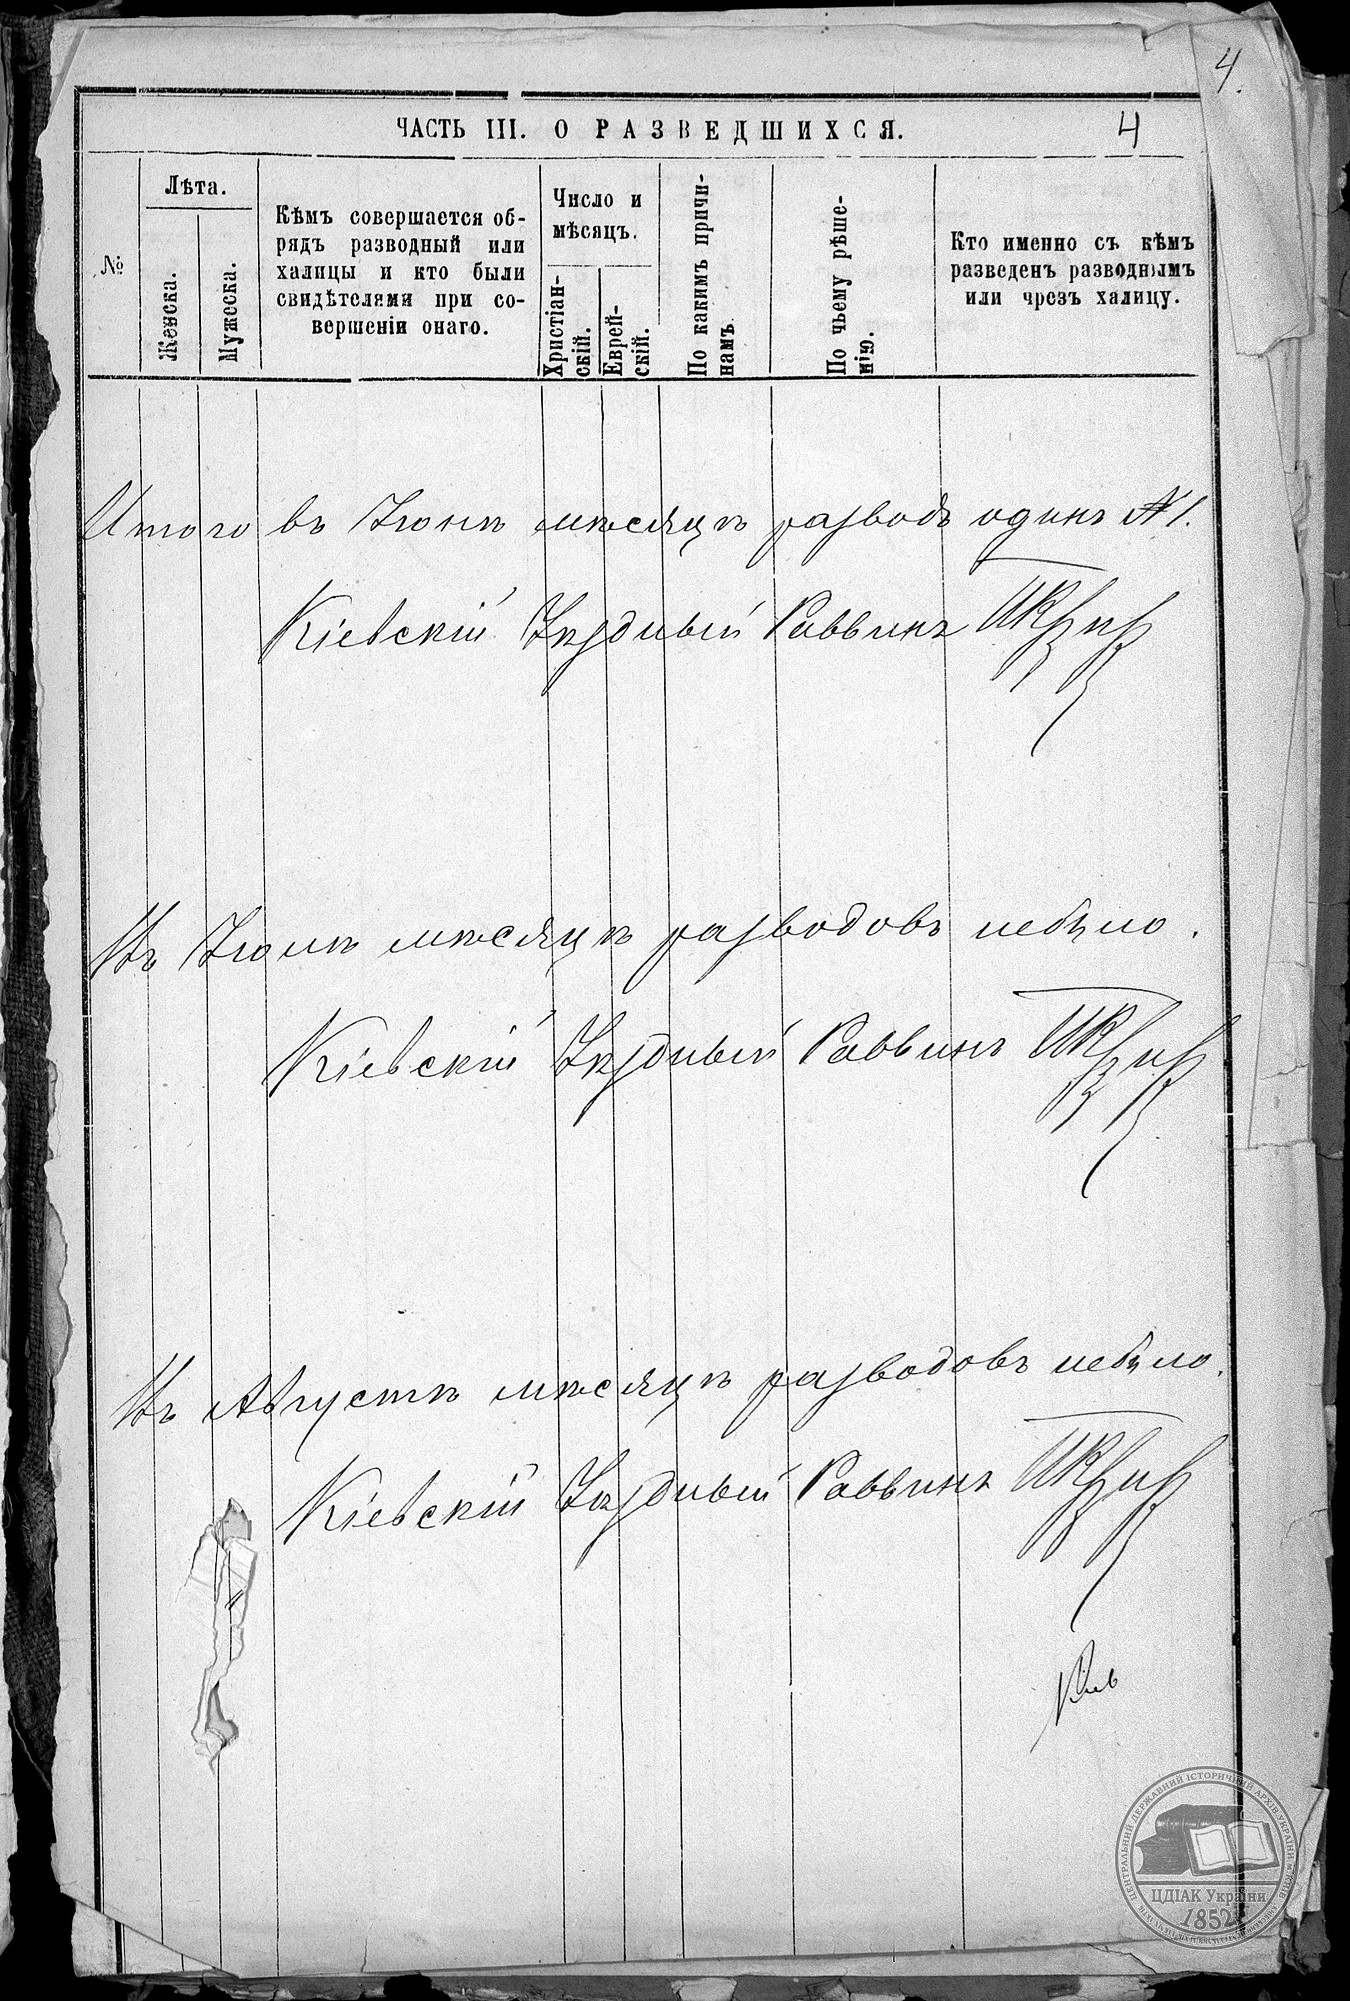 4.
ЧАСТЬ III. О РАЗВЕДШИХСЯ.
4
№
Лѣта.
Женска.
Мужеска.
Кѣмъ совершается об-
рядъ разводный или
халицы и кто были
свидѣтелями при со-
вершеніи онаго.
Число и
мѣсяцъ.
Христіан-
скій.
Еврей-
скій.
По какимъ причи-
намъ.
По чьему рѣше-
нію.
Кто именно съ кѣмъ
разведенъ разводнымъ
или чрезъ халицу.
Итого въ Іюнѣ мѣсяцѣ разводъ одинъ №1.
Кіевскій Уѣздный Раввинъ
Въ Іюлѣ мѣсяцѣ разводовъ небыло.
Кіевскій Уѣздный Раввинъ
Въ Августѣ мѣсяцѣ разводовъ небыло.
Кіевскій Уѣздный Раввинъ
ЦЕНТРАЛЬНИЙ ДЕРЖАВНИЙ ІСТОРИЧНИЙ АРХІВ УКРАЇНИ, м. КИЇВ
ЦДІАК України
1852